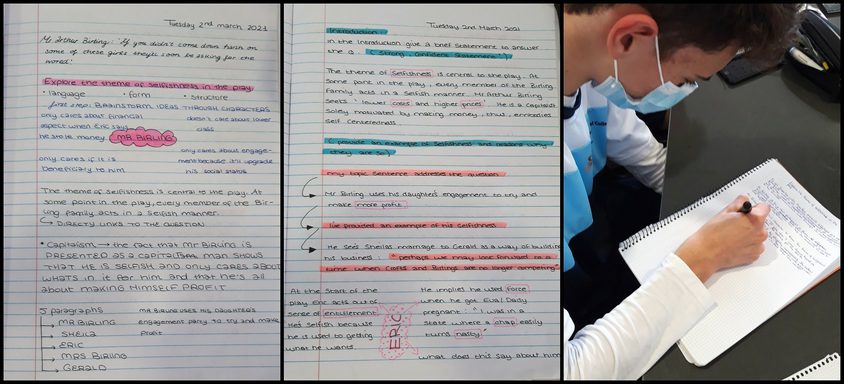 Tuesday 2nd march 2021
Mr Arthur Birling: "If you didn't come down harsh on
some of these girls they'll soon be asking for the
world."
Explore the theme of selfishness in the play.
• language • form • structure
first step: BRAINSTORM IDEAS THROUGH CHARACTERS
only cares about financial
aspect when Eric says
he stole money.
doesn't care about lower
class
MR. BIRLING
only cares if it is
beneficiary to him
only cares about engage-
ment because it'll upgrade
his social status
The theme of selfishness is central to the play. At
some point in the play, every member of the Bir-
ling family acts in a selfish manner.
↳ DIRECTLY LINKS TO THE QUESTION
• Capitalism → the fact that Mr BIRLING IS
PRESENTED AS A CAPITALISM MAN SHOWS
THAT HE IS SELFISH AND ONLY CARES ABOUT
WHATS IN IT FOR HIM AND that he's all
about making HIMSELF PROFIT
5 paragraphs
→ MR BIRLING
→ SHEILA
→ ERIC
→ MRS BIRLING
→ GERALD
MR BIRLING USES HIS DAUGHTER'S
engagement party to try and make
Profit
Tuesday 2nd March 2021
Introduction:
In the introduction give a brief statement to answer
the Q. (Strong, Confident Statement!)
The theme of selfishness is central to the play. At
some point in the play, every member of the Birling
Family acts in a selfish manner. Mr Arthur Birling
seeks "lower costs and higher prices". He is a capitalist
solely motivated by making money, thus, embodies
self centeredness.
(provide an example of selfishness and reasons why
they are so)
my topic sentence addresses the question
Mr Birling uses his daughter's engagement to try and
make more profit.
I've provided an example of his selfishness
He sees Sheilas marriage to Gerald as a way of building
his business. "perhaps we may look forward to a
time when Crofts and Birlings are no longer competing"
At the start of the
play Eric acts out of
sense of entitlement
He's selfish because
he is used to getting
what he wants.
ERIC
He implies he used force
when he got Eva/Daisy
pregnant: "I was in a
state where a chap easily
turns nasty"
what does this say about him